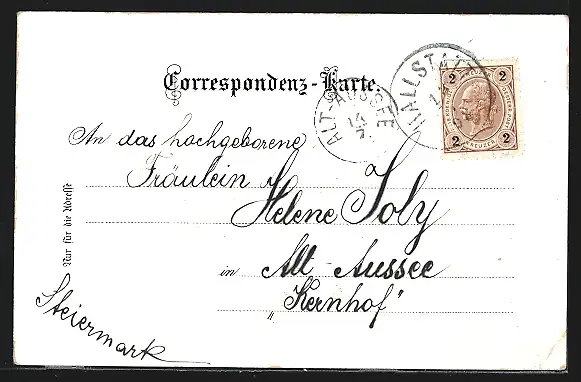 Correspondenz-Karte.
HALLSTATT
ALT-AUSSEE
14
7
2 2
2 2
KREUZER
An das hochgeborene
Fräulein
Helene Joly
in Alt-Aussee
„Kernhof"
Steiermark
Nur für die Adresse